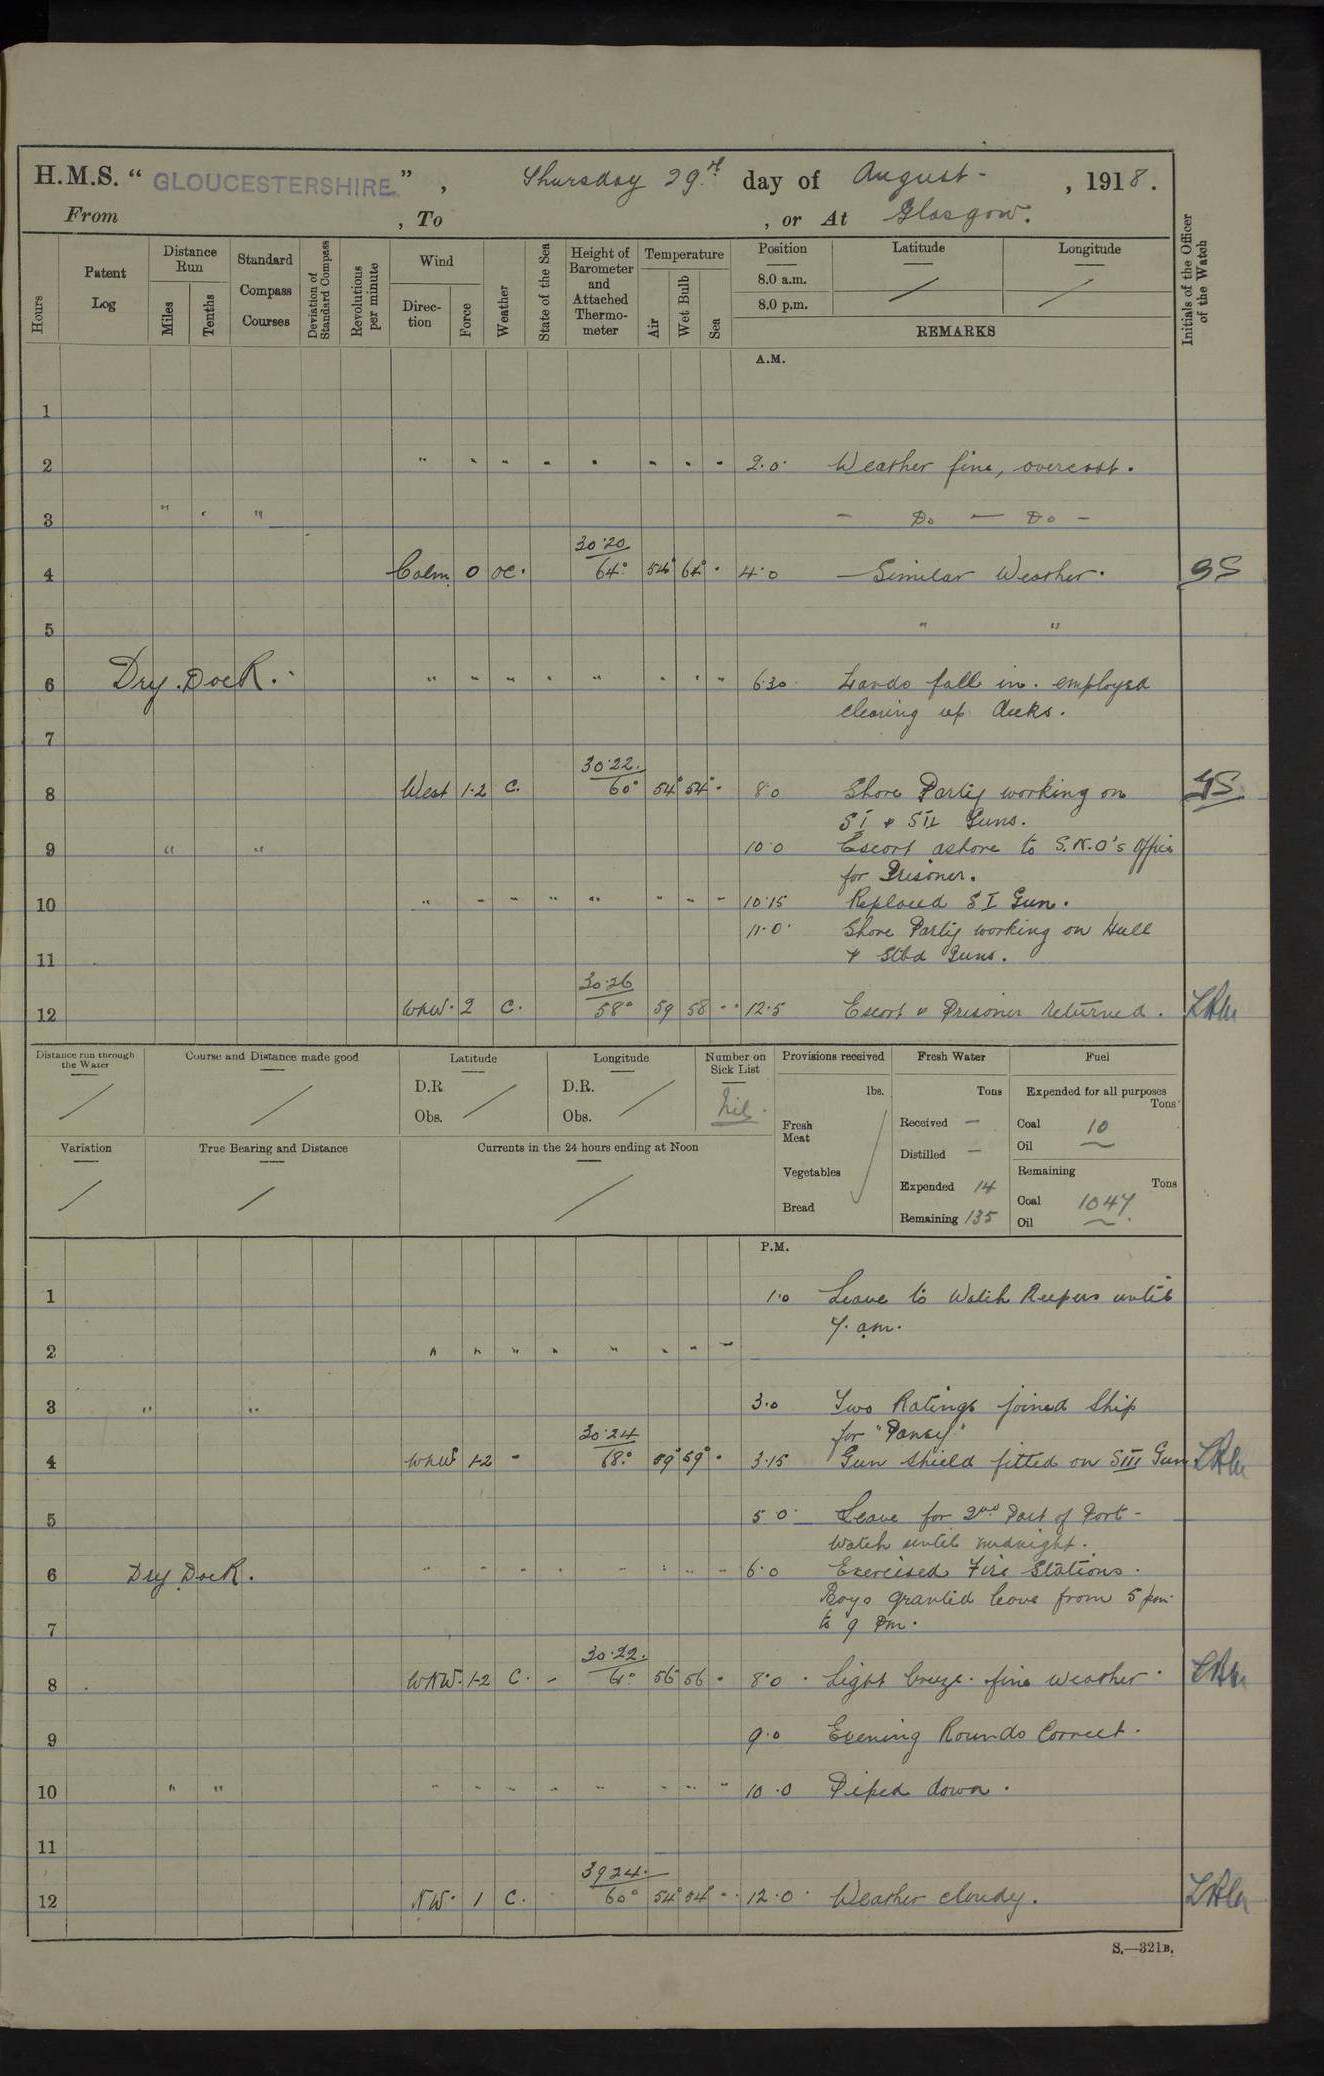 H.M.S. " GLOUCESTERSHIRE. " , Thursday 29th day of August - , 1918.
From , To , or At Glasgow.
Hours
Patent Log
Distance Run
Miles
Tenths
Standard Compass Courses
Deviation of Standard Compass
Revolutions per minute
Wind
Direction
Force
Weather
State of the Sea
Height of Barometer and Attached Thermometer
Temperature
Air
Wet Bulb
Sea
Position
8.0 a.m.
8.0 p.m.
Latitude
Longitude
REMARKS
Initials of the Officer of the Watch
A.M.
1
2 " " " - - - - - 2.0 Weather fine, overcast.
3 " " " - Do - Do -
30.20
4 Calm 0 oc. 64° 54° 64° . 4.0 Similar Weather.
5 " "
6 Dry Dock. " " " " " " " " 6.30 Hands fall in. employed
clearing up decks.
7
30.22.
8 West 1-2 c. 60° 54° 54° - 8.0 Shore Party working on
SI & SII Guns.
9 " " 10.0 Escort ashore to S.N.O's Office
for Prisoner.
10 " " " " " " " " 10.15 Replaced SI Gun.
11.0 Shore Party working on Hull
11 & Stbd Guns.
30.26
12 WNW. 2 c. 58° 59 58 - 12.5 Escort & Prisoner returned.
Distance run through the Water
Course and Distance made good
Latitude
D.R.
Obs.
Longitude
D.R.
Obs.
Number on Sick List
Nil.
Provisions received
lbs.
Fresh Meat
Vegetables
Bread
Fresh Water
Tons
Received -
Distilled -
Expended 14
Remaining 135
Fuel
Expended for all purposes
Tons
Coal 10
Oil
Remaining
Tons
Coal 1047
Oil
Variation
True Bearing and Distance
Currents in the 24 hours ending at Noon
P.M.
1 1.0 Leave to Watch Keepers until
7. am.
2 " " " " " " " -
3 " " 3.0 Two Ratings joined Ship
30.24 for "Pansy"
4 WNW 1-2 - 68° 59° 59° . 3.15 Gun shield fitted on SIII Gun
5 5 0. Leave for 2nd Part of Port-
Watch until midnight.
6 Dry Dock. " " " " " " " 6.0 Exercised Fire Stations.
Boys granted leave from 5 pm.
7 to 9 Pm.
30.22.
8 WNW. 1-2 C. - 61° 56 56 - 8.0 Light breeze. fine weather.
9 9.0 Evening Rounds Correct.
10 " " " " " " " " " " 10.0 Piped down.
11
3924.
12 NW. 1 C. 60° 54° 54° - 12.0 Weather cloudy.
S.—321B.